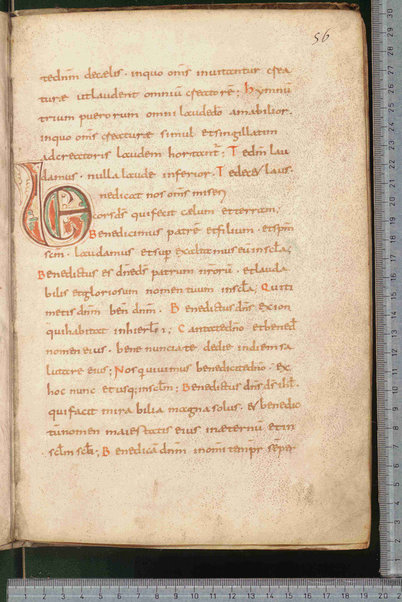 56
te dn̄m decaelis · inquo om̄s inuitantur crea
turæ utlaudent omniū creatorē; hymnū
trium puerorum omni laude amabilior ·
inquo om̄s creaturæ simul et singillatim
adcreatoris laudem hortant̄; Te dm̄ lau
damus · nulla laude inferior · Te decet laus ·
Benedicat nos om̄s miseri
cors ds̄ qui fecit cælum et terram;
Benedicimus patrē et filium · et sp̄m
sc̄m · laudamus et sup exaltamus eū in sc̄la;
Benedictus es dn̄e ds̄ patrum nr̄orū · et lauda
bilis et gloriosum nomen tuum in sc̄la; Qui ti
metis dn̄m ben̄ dn̄m · Benedictus dn̄s ex ion
qui habitat inhierl̄; Cantate dn̄o et bened̄
nomen eius · bene nunciate dedie indiem sa
lutare eius; Nos qui uiuimus benedicite dn̄o · ex
hoc nunc et usq; in sc̄lm; Benedictus dn̄s ds̄ isl̄ ·
qui facit mirabilia magna solus · et benedic
tū nomen maiestatis eius inæternū et in
sc̄lm sc̄li; Benedicā dn̄m inom̄i tempr̄ semper